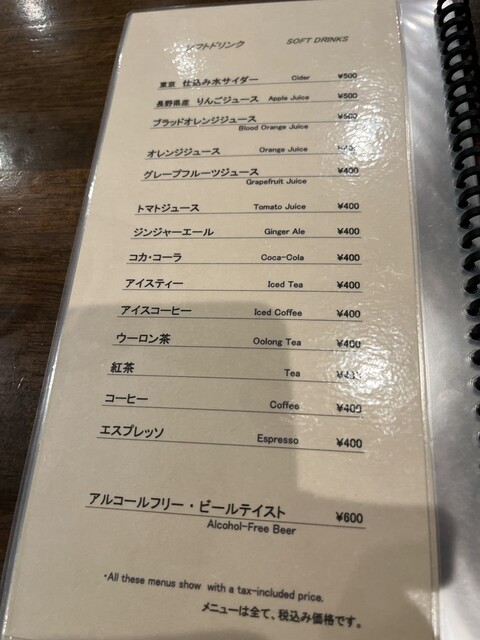 ソフトドリンク SOFT DRINKS
東京 仕込み水サイダー Cider ¥500
長野県産 りんごジュース Apple Juice ¥500
ブラッドオレンジジュース ¥500
Blood Orange Juice
オレンジジュース Orange Juice
グレープフルーツジュース ¥400
Grapefruit Juice
トマトジュース Tomato Juice ¥400
ジンジャーエール Ginger Ale ¥400
コカ・コーラ Coca-Cola ¥400
アイスティー Iced Tea ¥400
アイスコーヒー Iced Coffee ¥400
ウーロン茶 Oolong Tea ¥400
紅茶 Tea
コーヒー Coffee ¥400
エスプレッソ Espresso ¥400
アルコールフリー・ビールテイスト ¥600
Alcohol-Free Beer
・All these menus show with a tax-included price.
メニューは全て、税込み価格です。